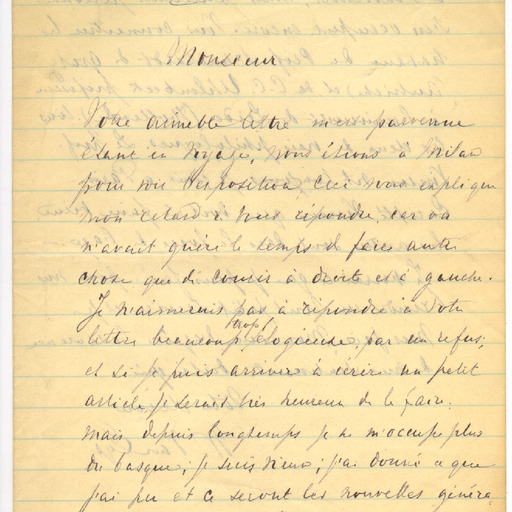 Monsieur
Votre aimable lettre m'est parvenue
étant en voyage, nous étions à Milan
pour voir l'exposition. Ceci vous explique
mon retard à vous répondre, car on
n'avait guère le temps de faire autre
chose que de courir à droite et à gauche.
Je n'aimerais pas à répondre à votre
lettre beaucoup trop élogieuse, par un refus;
et si je puis arriver à écrire un petit
article je serais très heureux de le faire.
Mais depuis longtemps je ne m'occupe plus
du basque, je suis vieux; j'ai donné ce que
j'ai pu et ce seront les nouvelles généra